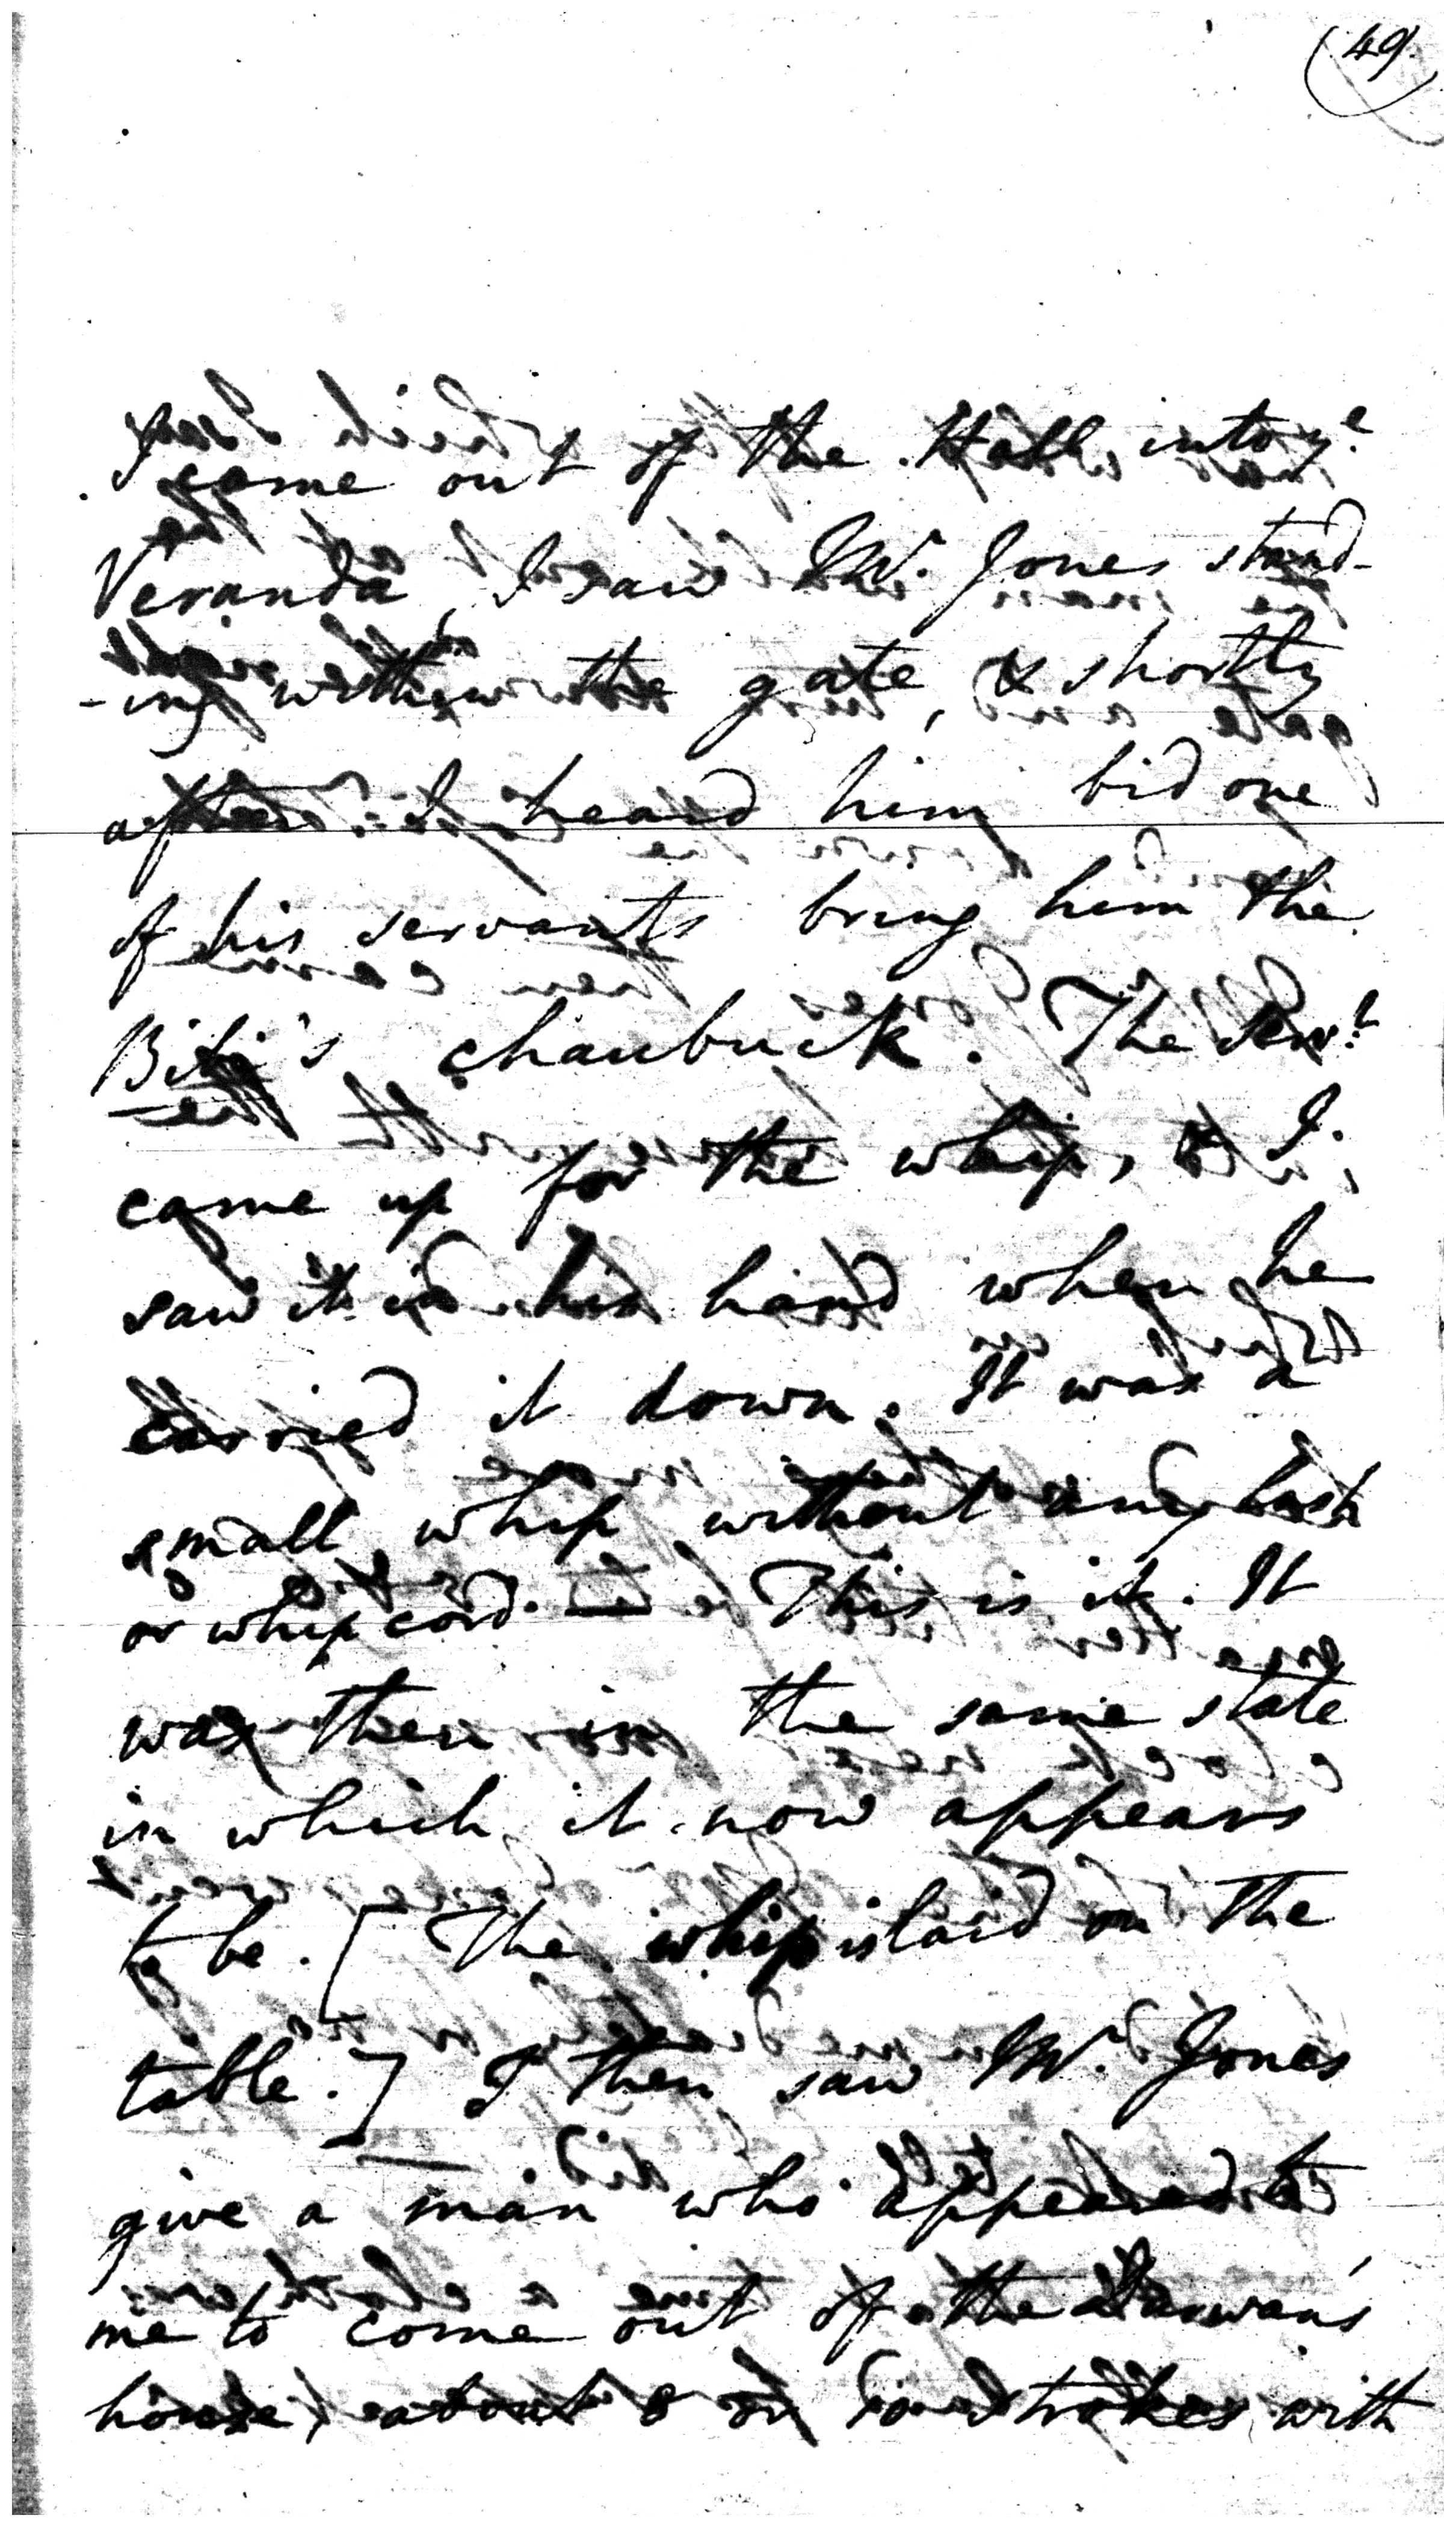 (49)
I came out of the Hall into ye
Veranda, I saw Mr. Jones stand-
-ing within the gate, & shortly
after I heard him bid one
of his servants bring him the
Bibi's chaubuck. The Servt
came up for the whip, & I
saw it in his hand when he
carried it down. It was a
small whip without any lash
or whipcord. — This is it. It
was then in the same state
in which it now appears
to be. [The whip is laid on the
table.] I then saw Mr. Jones
give a man who appeared to
me to come out of the darwan's
house, about 8 or 10 strokes with